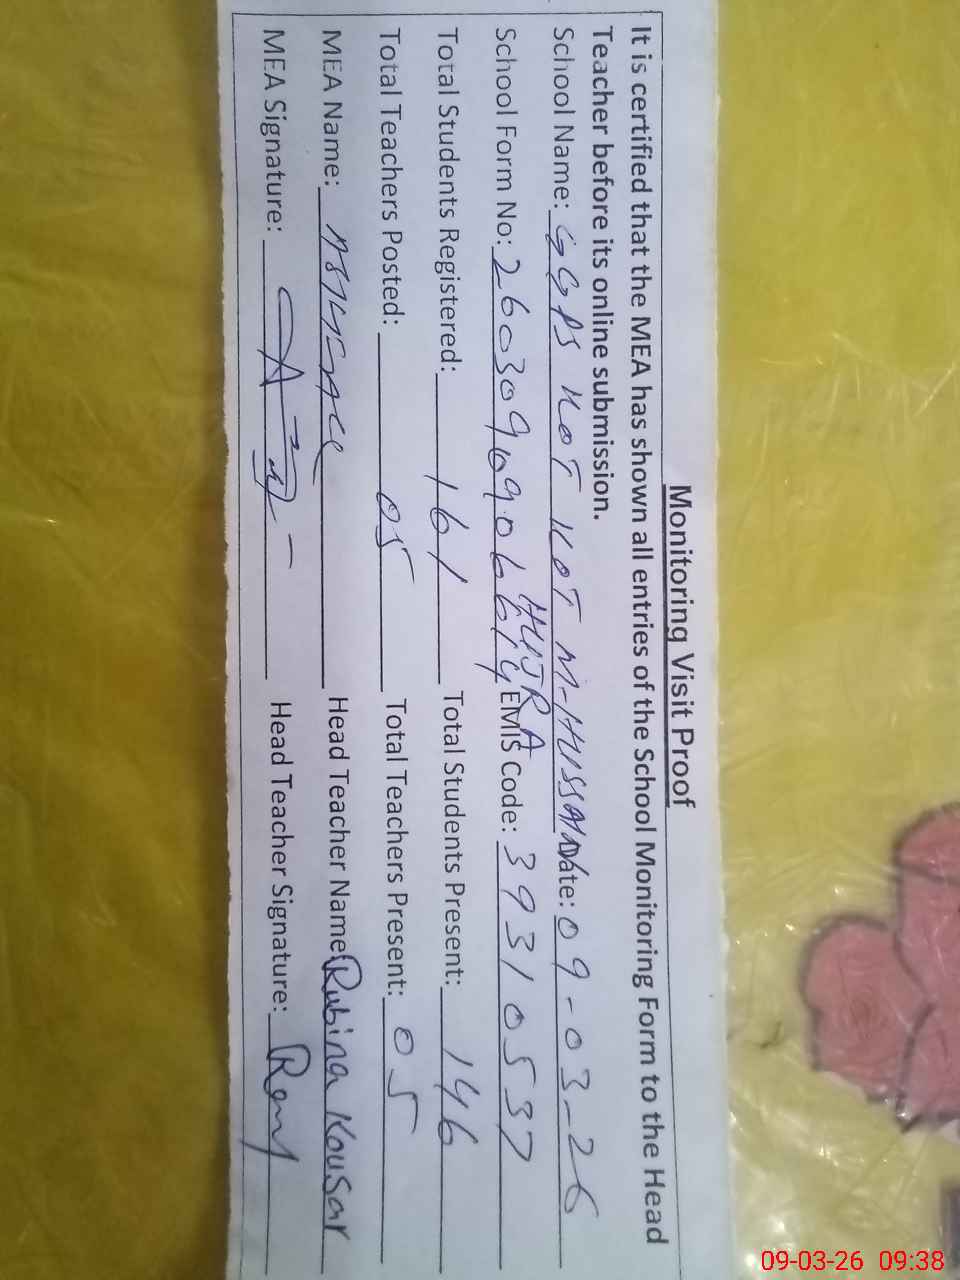 Monitoring Visit Proof
It is certified that the MEA has shown all entries of the School Monitoring Form to the Head
Teacher before its online submission.
School Name: GGPS KOT KOT M-HUSSAN Date: 09-03-26
HUJRA
School Form No: 2603090906614 EMIS Code: 39310537
Total Students Registered: 161 Total Students Present: 146
Total Teachers Posted: 05 Total Teachers Present: 05
MEA Name: Head Teacher Name: Rubina Kousar
MEA Signature: Head Teacher Signature:
09-03-26 09:38